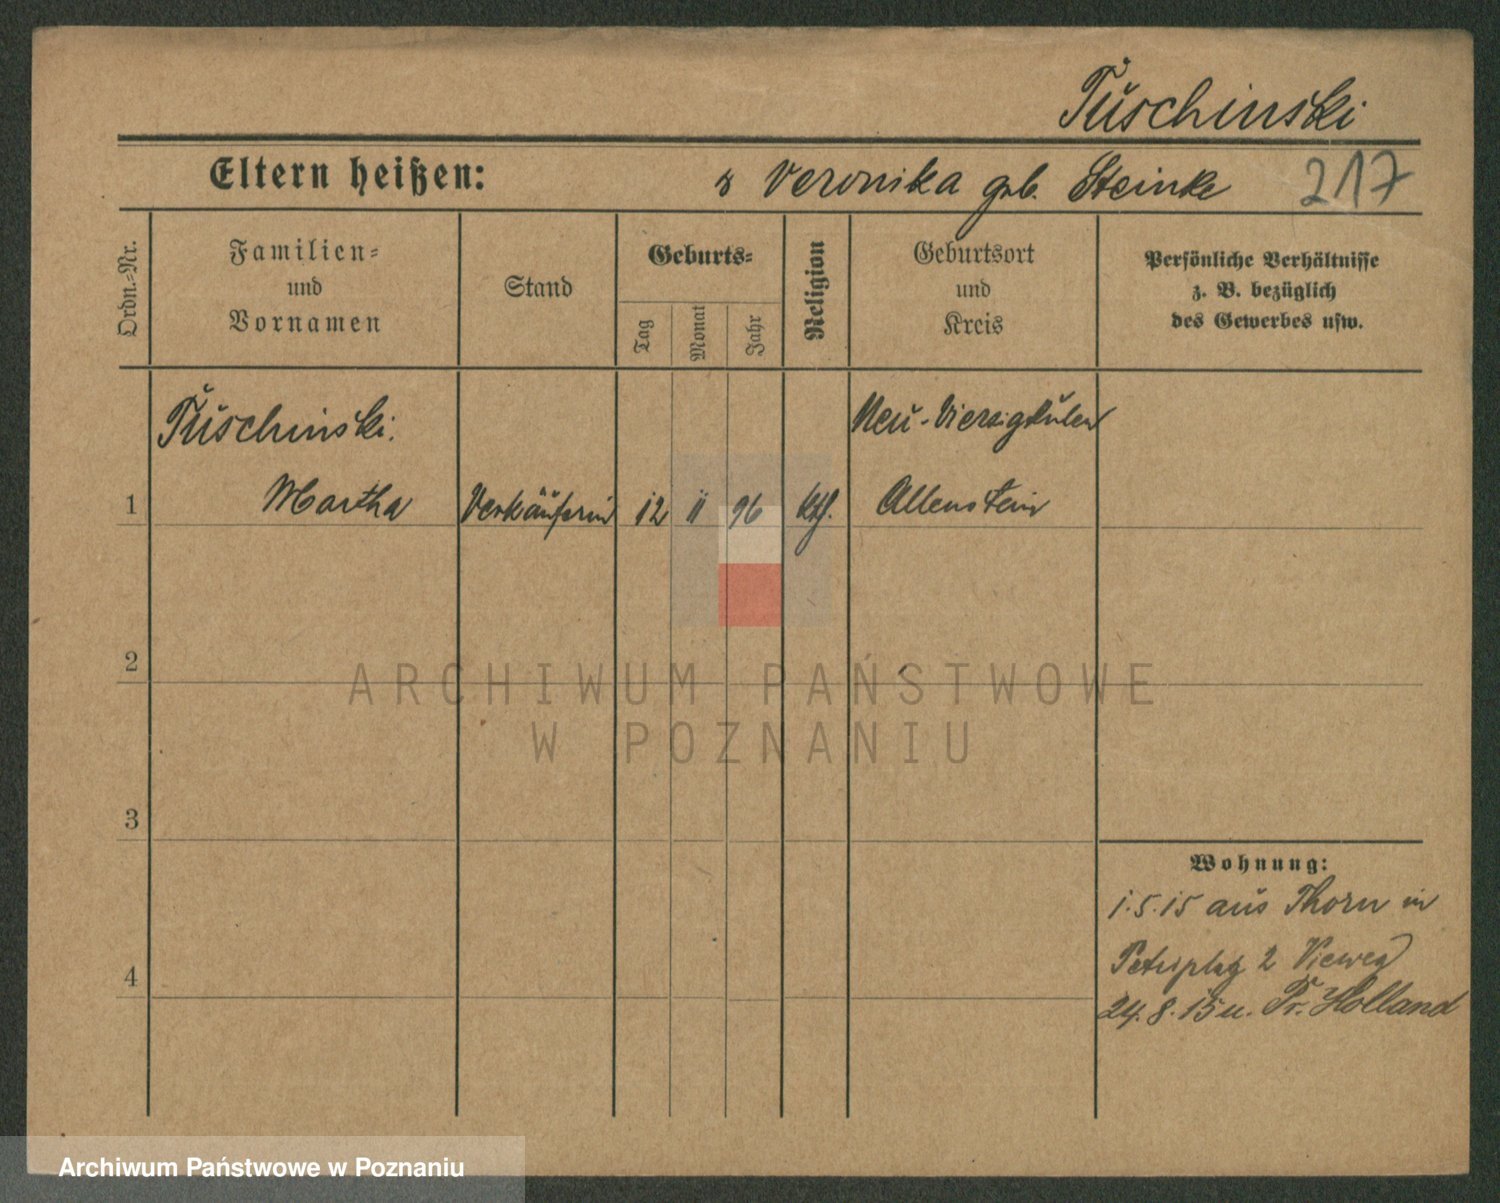 Tuschinski
Eltern heißen:
Veronika geb. Steinke 217
Ordn.-Nr.
Familien-
und
Vornamen
Stand
Geburts-
Tag
Monat
Jahr
Religion
Geburtsort
und
Kreis
Persönliche Verhältnisse
z. B. bezüglich
des Gewerbes usw.
Tuschinski. Neu-Vierzighuben
1 Martha Verkäuferin 12 11 96 kth. Allenstein
2
ARCHIWUM PAŃSTWOWE
W POZNANIU
3
Wohnung:
1.5.15 aus Thorn in
Petriplatz 2 Vieweg
4
24.8.15 u. Pr. Holland
Archiwum Państwowe w Poznaniu